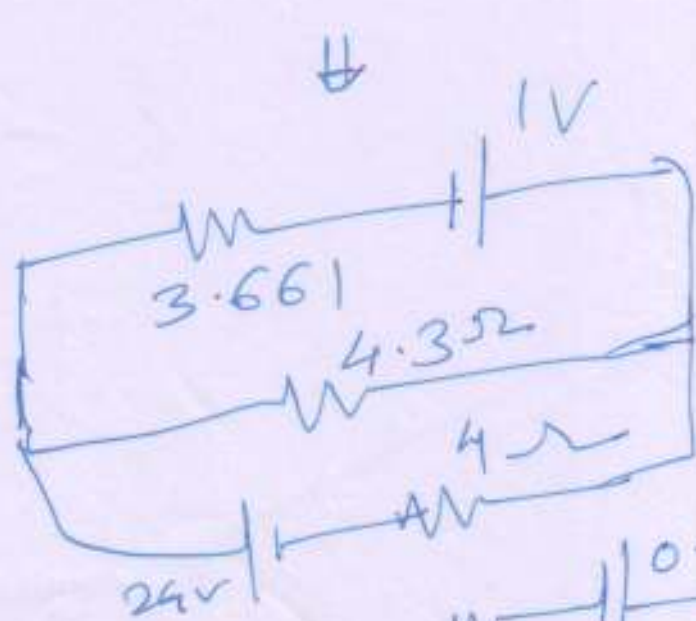 1V
3.661
4.3Ω
4Ω
24V
0.